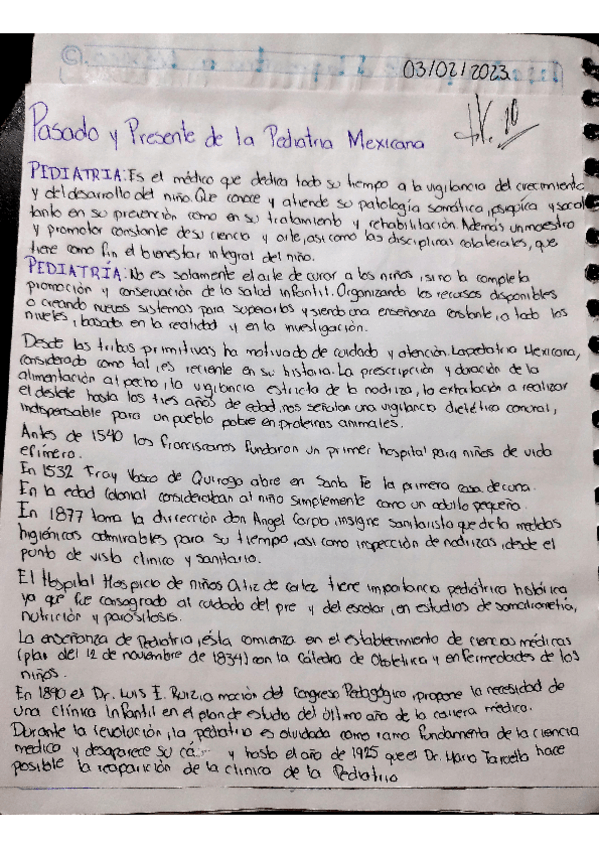 03/02/2023
10
Pasado y Presente de la Pediatria Mexicana
PEDIATRIA: Es el médico que dedica todo su tiempo a la vigilancia del crecimiento
y del desarrollo del niño. Que conoce y atiende su patología somática, psíquica y social
tanto en su prevención como en su tratamiento y rehabilitación. Además un maestro
y promotor constante de su ciencia y arte, así como las disciplinas colaterales, que
tiene como fin el bienestar integral del niño.
PEDIATRÍA: No es solamente el arte de curar a los niños, sino la completa
promoción y conservación de la salud infantil. Organizando los recursos disponibles
o creando nuevos sistemas para superarlos y siendo una enseñanza constante, a todo los
niveles, basada en la realidad y en la investigación.
Desde las tribus primitivas ha motivado de cuidado y atención. La pediatria Mexicana,
considerado como tal, es reciente en su historia. La prescripción y duración de la
alimentación al pecho, la vigilancia estricta de la nodriza, la exhaltación a realizar
el destete hasta los tres años de edad, nos señalan una vigilancia dietética
indispensable para un pueblo pobre en proteinas animales.
Antes de 1540 los franciscanos fundaron un primer hospital para niños de vida
efímero.
En 1532 Fray Vasco de Quiroga abre en Santa Fe la primera casa de cuna.
En la edad Colonial consideraban al niño simplemente como un adulto pequeño.
En 1877 toma la dirección don Angel Carpio, insigne sanitarista que dicta medidas
higiénicas admirables para su tiempo, así como inspección de nodrizas, desde el
punto de vista clínico y sanitario.
El Hospital Hospicio de niños Ortiz de cortez tiene importancia pediátrica histórica
ya que fue consagrado al cuidado del pre y del escolar, en estudios de somatometría,
nutrición y parasitosis.
La enseñanza de Pediatria, ésta comienza en el establecimiento de ciencias médicas
(plan del 12 de noviembre de 1834) con la Cátedra de Obstetrica y enfermedades de los
niños.
En 1890 el Dr. Luis E. Ruiz, a moción del Congreso Pedagógico, propone la necesidad de
una clínica Infantil en el plan de estudio del último año de la carrera médica.
Durante la revolución, la pediatria es olvidada como rama fundamenta de la ciencia
medica y desaparece su y hasta el año de 1925 que el Dr. Mario Torroella hace
posible la reaparición de la clinica de la Pediatria